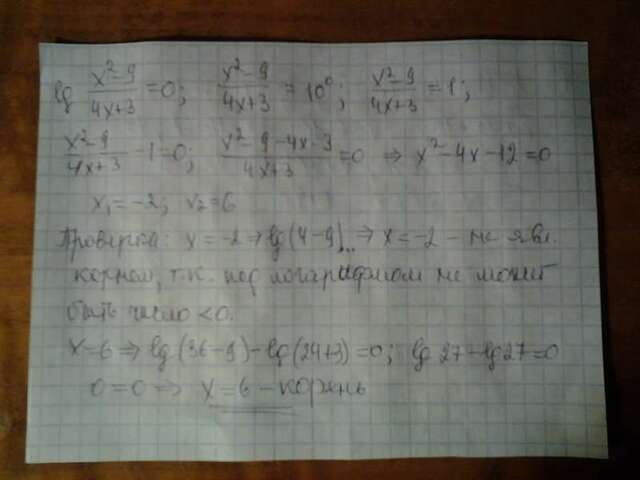 lg (x²-9)/(4x+3) = 0; (x²-9)/(4x+3) = 10⁰; (x²-9)/(4x+3) = 1;
(x²-9)/(4x+3) - 1 = 0; (x²-9-4x-3)/(4x+3) = 0 ⇒ x²-4x-12=0
x₁=-2; x₂=6
Проверка: x=-2 ⇒ lg(4-9).. ⇒ x=-2 - не явл.
корнем, т.к. под логарифмом не может
быть число <0.
x=6 ⇒ lg(36-9)-lg(24+3)=0; lg27-lg27=0
0=0 ⇒ x=6 - корень